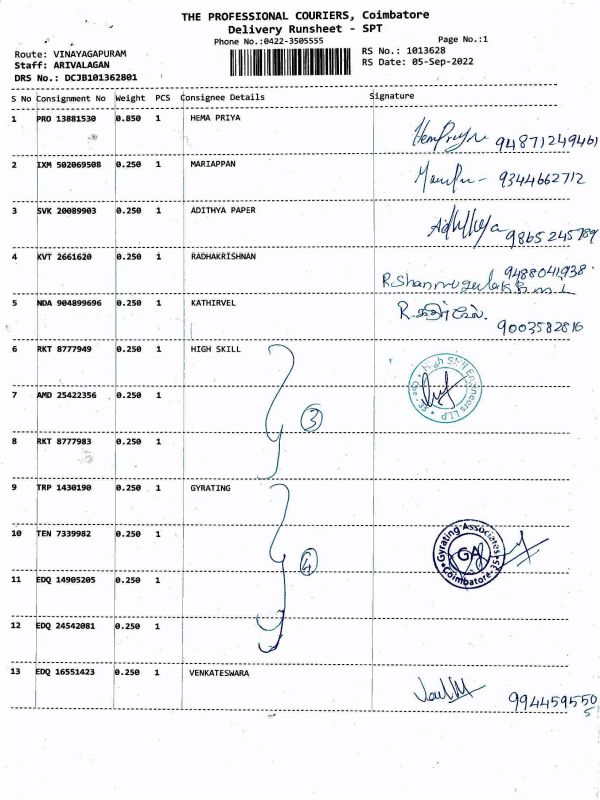 THE PROFESSIONAL COURIERS, Coimbatore
Delivery Runsheet - SPT
Phone No.:0422-3505555
Page No.:1
Route: VINAYAGAPURAM
RS No.: 1013628
Staff: ARIVALAGAN
RS Date: 05-Sep-2022
DRS No.: DCJB101362801
S No Consignment No Weight PCS Consignee Details Signature
1 PRO 13881530 0.850 1 HEMA PRIYA
94871249461
2 IXM 502069508 0.250 1 MARIAPPAN
9344662712
3 SVK 20089903 0.250 1 ADITHYA PAPER
9865245789
4 KVT 2661620 0.250 1 RADHAKRISHNAN
9488041938
5 NDA 904899696 0.250 1 KATHIRVEL
R.கதிர்வேல்.
9003582816
6 RKT 8777949 0.250 1 HIGH SKILL
High Skill Engineers LLP
7 AMD 25422356 0.250 1
3
8 RKT 8777983 0.250 1
9 TRP 1430190 0.250 1 GYRATING
10 TEN 7339982 0.250 1
Gyrating Associates
GA
Coimbatore-35
4
11 EDQ 14905205 0.250 1
12 EDQ 24542081 0.250 1
13 EDQ 16551423 0.250 1 VENKATESWARA
9944595505